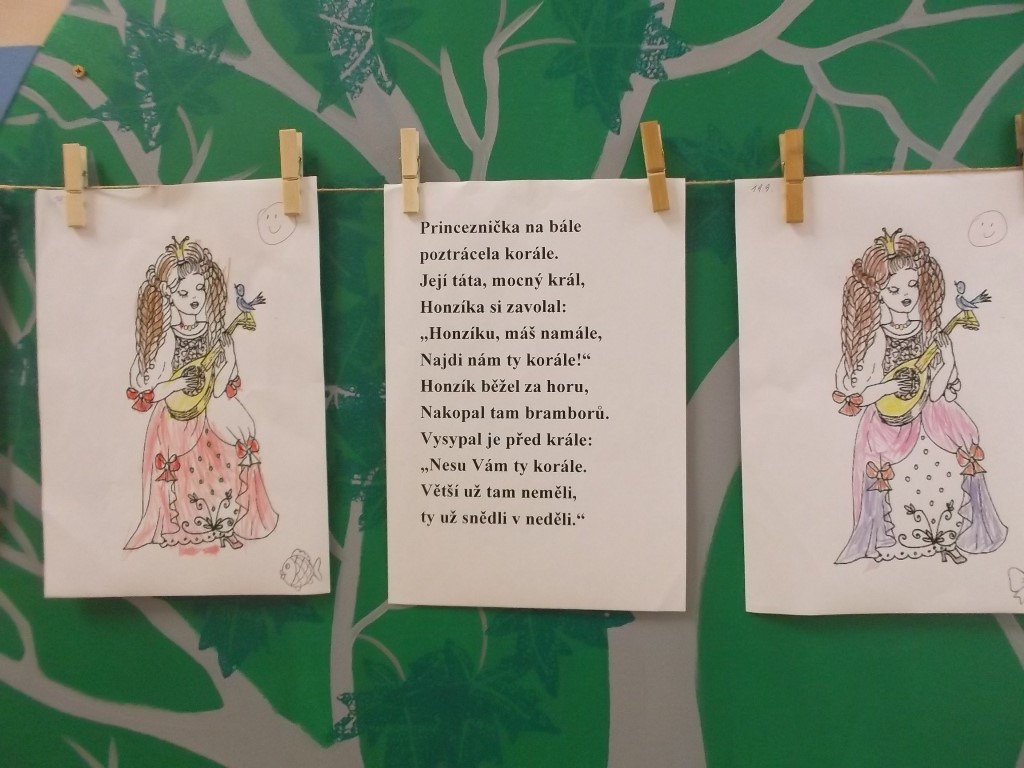 Princeznička na bále
poztrácela korále.
Její táta, mocný král,
Honzíka si zavolal:
„Honzíku, máš namále,
Najdi nám ty korále!“
Honzík běžel za horu,
Nakopal tam bramborů.
Vysypal je před krále:
„Nesu Vám ty korále.
Větší už tam neměli,
ty už snědli v neděli.“